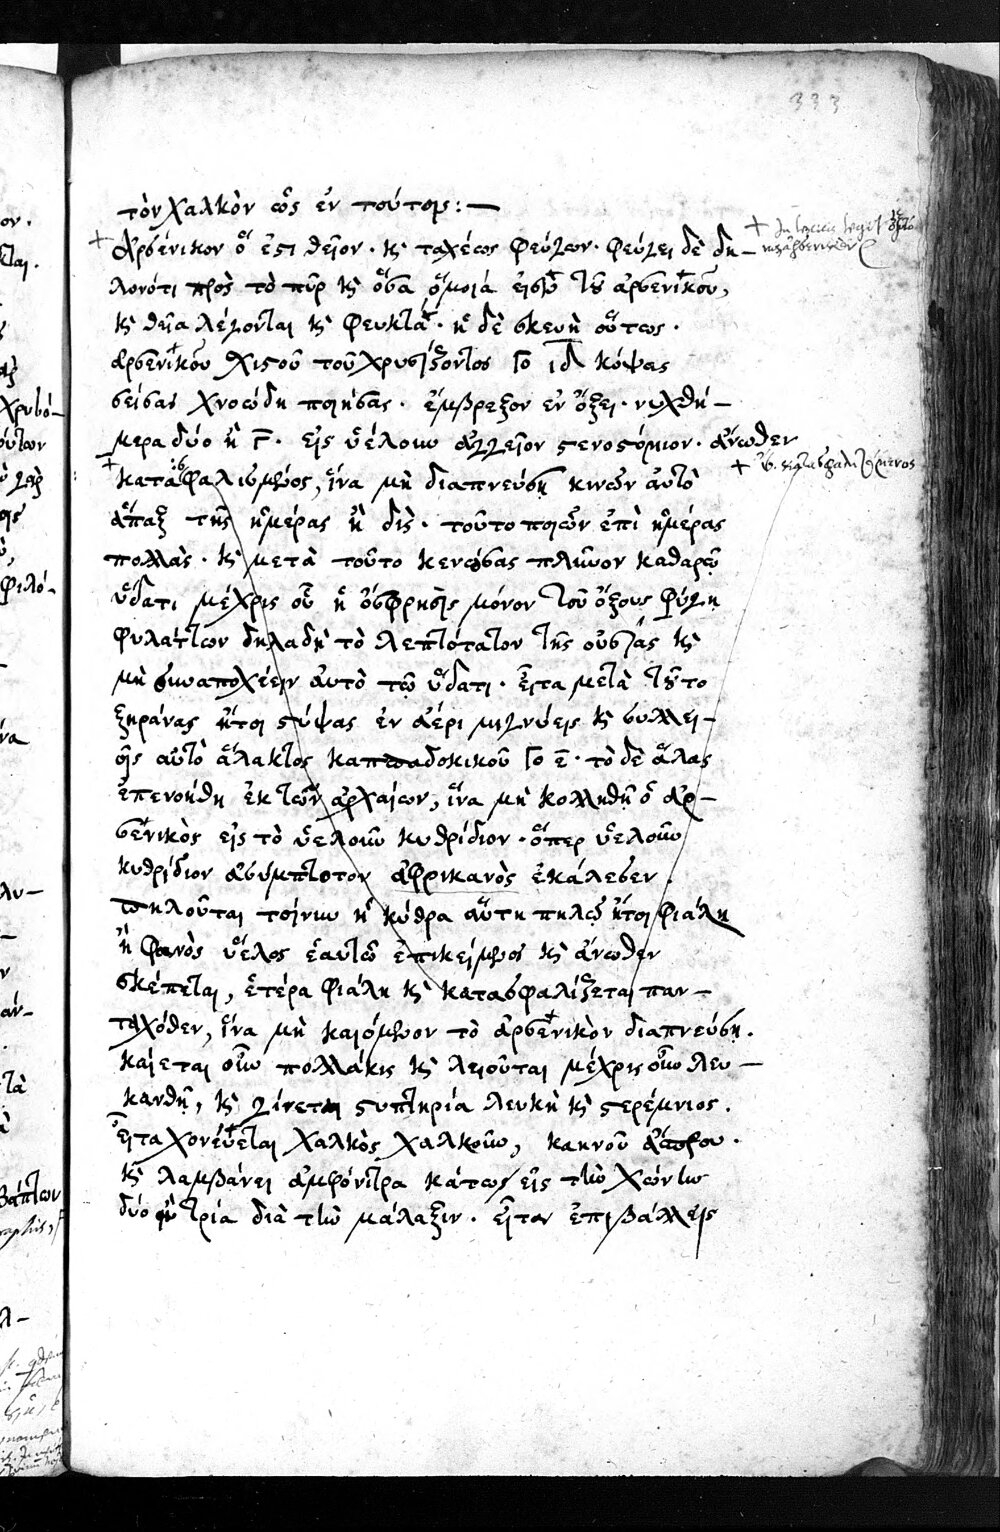 333
τὸν χαλκὸν ὡς ἐν τούτοις : —
Ἀρσένικον ὅ ἐστι θεῖον · καὶ ταχέως φεῦγον · φεύγει δὲ δη-
λονότι πρὸς τὸ πῦρ καὶ ὅσα ὅμοιά εἰσι τοῦ ἀρσενίκου,
καὶ θεῖα λέγονται καὶ φευκτά · ἡ δὲ σκευὴ οὕτως ·
ἀρσενίκου σχιστοῦ τοῦ χρυσίζοντος Γο ιδ κόψας
σείσας χνοώδη ποιήσας · ἔμβρεξον ἐν ὄξει · νυχθή-
μερα δύο ἢ γ · εἰς ὑέλουν ἀγγεῖον στενοστόμιον · ἄνωθεν
κατασφαλισμένος, ἵνα μὴ διαπνεύσῃ κινῶν αὐτὸ
ἅπαξ τῆς ἡμέρας ἢ δὶς · τοῦτο ποιῶν ἐπὶ ἡμέρας
πολλὰς · καὶ μετὰ τοῦτο κενώσας πλῦνον καθαρῷ
ὕδατι μέχρις οὗ ἡ ὄσφρησις μόνον τοῦ ὄξους φύγῃ
φυλάττων δηλαδὴ τὸ λεπτότατον τῆς οὐσίας καὶ
μὴ συναποχέειν αὐτὸ τῷ ὕδατι · εἶτα μετὰ τοῦτο
ξηράνας ἤτοι στύψας ἐν ἀέρι μιγνύεις καὶ συλλει-
οῖς αὐτὸ ἅλακτος καππαδοκικοῦ Γο ε · τὸ δὲ ἅλας
ἐπενοήθη ἐκ τῶν ἀρχαίων, ἵνα μὴ κολληθῇ ὁ ἀρ-
σένικὸς εἰς τὸ ὑελοῦν κυθρίδιον · ὅπερ ὑελοῦν
κυθρίδιον ἀσύμπτωτον ἀφρικανὸς ἐκάλεσεν .
πηλοῦται τοίνυν ἡ κύθρα αὕτη πηλῷ ἤτοι φιάλη
ἢ φανὸς ὕελος ἑαυτῷ ἐπικείμενος καὶ ἄνωθεν
σκέπεται, ἑτέρα φιάλη καὶ κατασφαλίζεται παν-
ταχόθεν, ἵνα μὴ καιόμενον τὸ ἀρσενικὸν διαπνεύσῃ .
καίεται οὖν πολλάκις καὶ λειοῦται μέχρις οὗν λευ-
κανθῇ, καὶ γίνεται στυπτηρία λευκὴ καὶ στερέμνιος .
εἶτα χονεύεται χαλκὸς χαλκοῦν, κακνοῦ
καὶ λαμβάνει ἀμφόνιτρα κάτωθ εἰς τὴν χώνην
δύο ἢ τρία διὰ τὴν μάλαξιν · εἶτα ἐπιβάλλεις